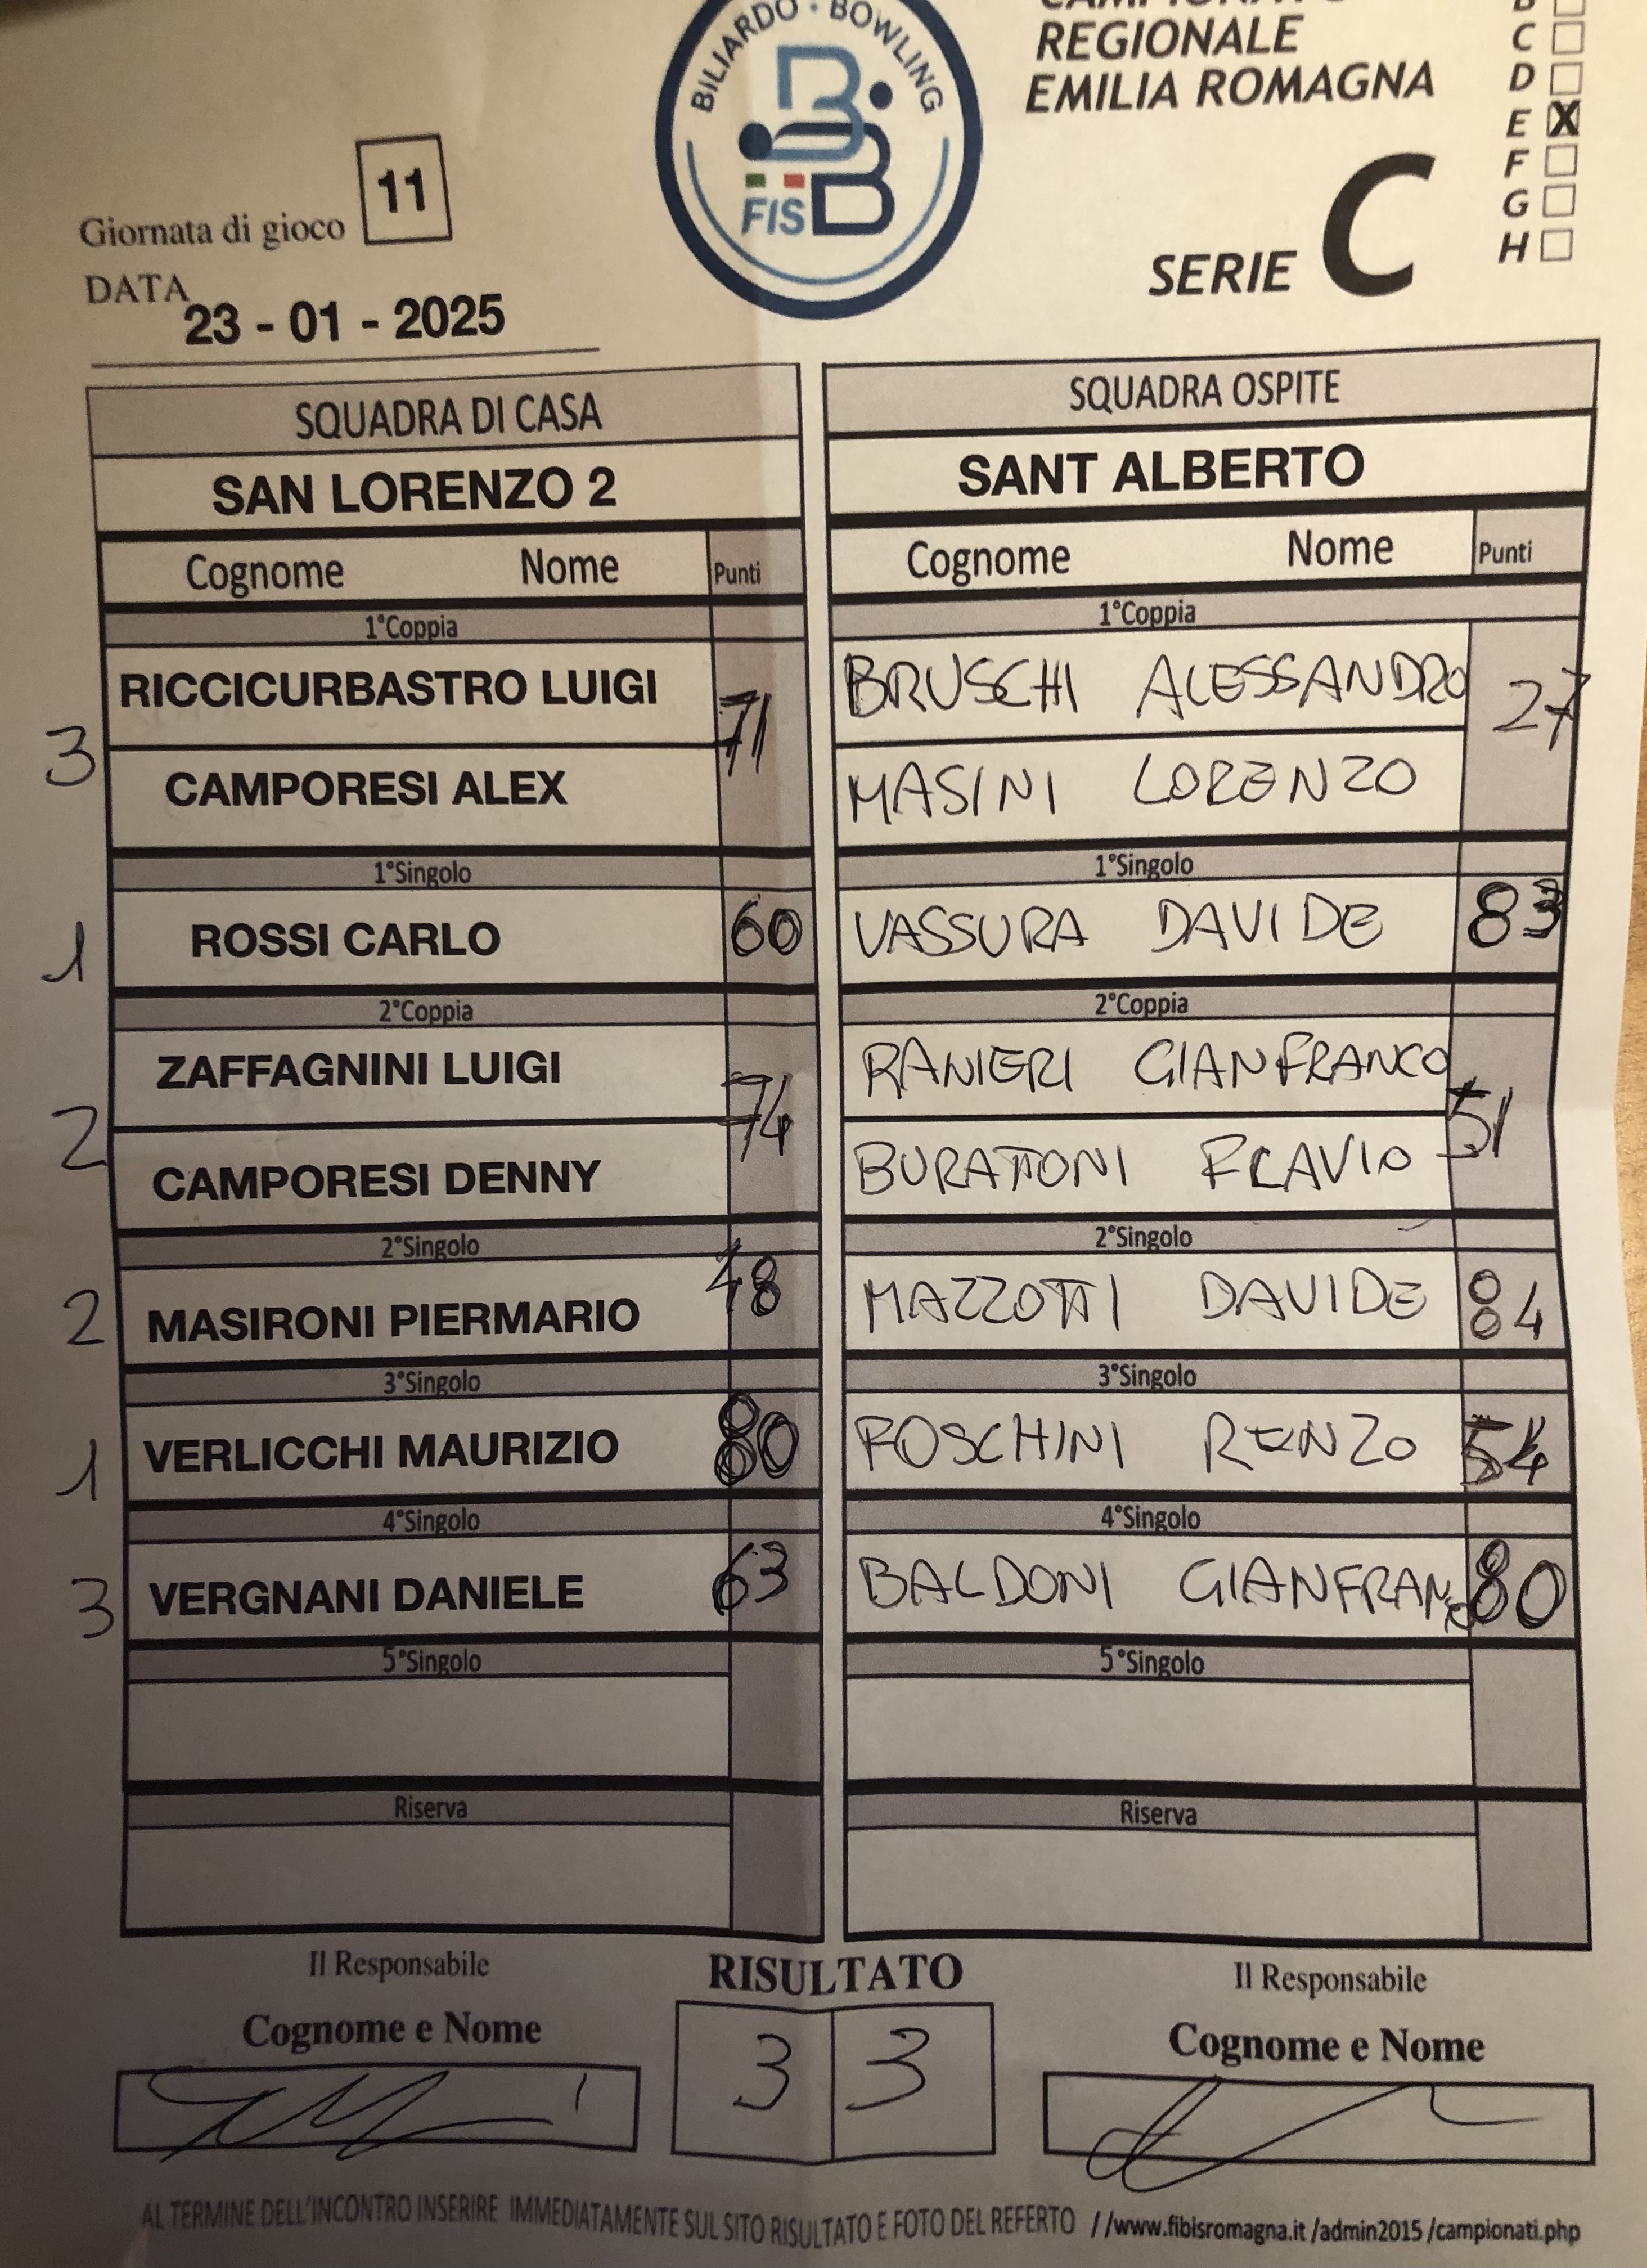 BILIARDO · BOWLING
FISBB
REGIONALE
EMILIA ROMAGNA
SERIE C
C
D
E X
F
G
H
Giornata di gioco 11
DATA
23 - 01 - 2025
SQUADRA DI CASA
SAN LORENZO 2
Cognome Nome Punti
1°Coppia
3 RICCICURBASTRO LUIGI 71
CAMPORESI ALEX
1°Singolo
1 ROSSI CARLO 60
2°Coppia
2 ZAFFAGNINI LUIGI 74
CAMPORESI DENNY
2°Singolo
2 MASIRONI PIERMARIO 48
3°Singolo
1 VERLICCHI MAURIZIO 80
4°Singolo
3 VERGNANI DANIELE 63
5°Singolo
Riserva
SQUADRA OSPITE
SANT ALBERTO
Cognome Nome Punti
1°Coppia
BRUSCHI ALESSANDRO 27
MASINI LORENZO
1°Singolo
VASSURA DAVIDE 83
2°Coppia
RANIERI GIANFRANCO 51
BURATTONI FLAVIO
2°Singolo
MAZZOTTI DAVIDE 84
3°Singolo
FOSCHINI RENZO 54
4°Singolo
BALDONI GIANFRANCO 80
5°Singolo
Riserva
Il Responsabile
Cognome e Nome
RISULTATO
3 3
Il Responsabile
Cognome e Nome
AL TERMINE DELL'INCONTRO INSERIRE IMMEDIATAMENTE SUL SITO RISULTATO E FOTO DEL REFERTO //www.fibisromagna.it /admin2015 /campionati.php